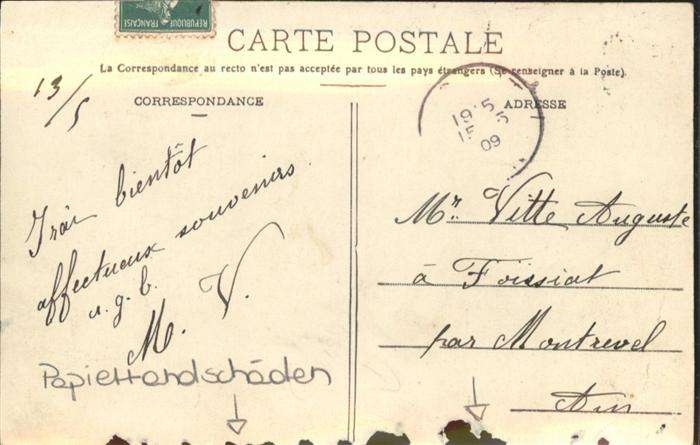 REPUBLIQUE FRANÇAISE
CARTE POSTALE
La Correspondance au recto n'est pas acceptée par tous les pays étrangers (Se renseigner à la Poste).
13/5
CORRESPONDANCE
Irai bientôt
affectueux souvenirs
M. V.
Papierrandschäden
ADRESSE
09
Mr. Vitte Auguste
à Foissiat
par Montrevel
Ain